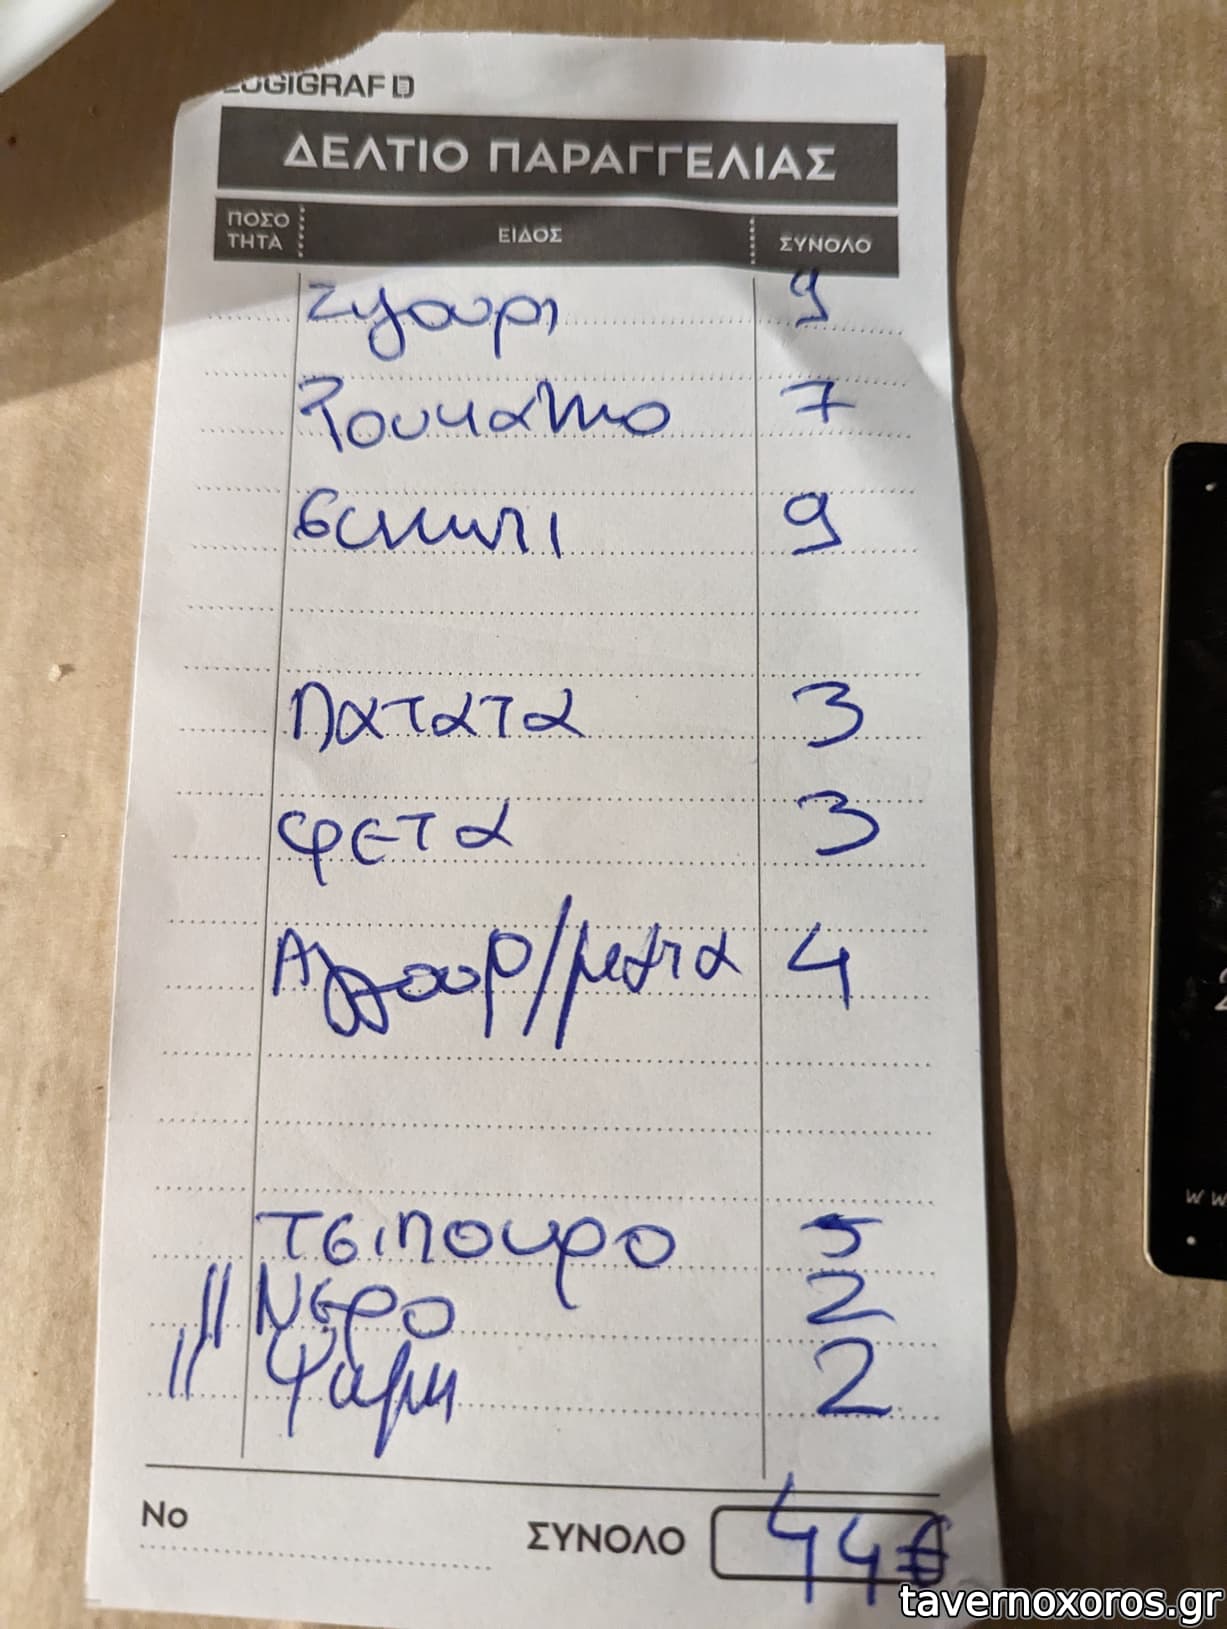 LOGIGRAF
ΔΕΛΤΙΟ ΠΑΡΑΓΓΕΛΙΑΣ
ΠΟΣΟΤΗΤΑ ΕΙΔΟΣ ΣΥΝΟΛΟ
Ζυγουρι 9
Λουκανικο 7
συκωτι 9
πατατα 3
φετα 3
Αγγουρ/ματα 4
Τσιπουρο 5
// Νερο 2
// Ψωμι 2
Νο ΣΥΝΟΛΟ 44€
tavernoxoros.gr